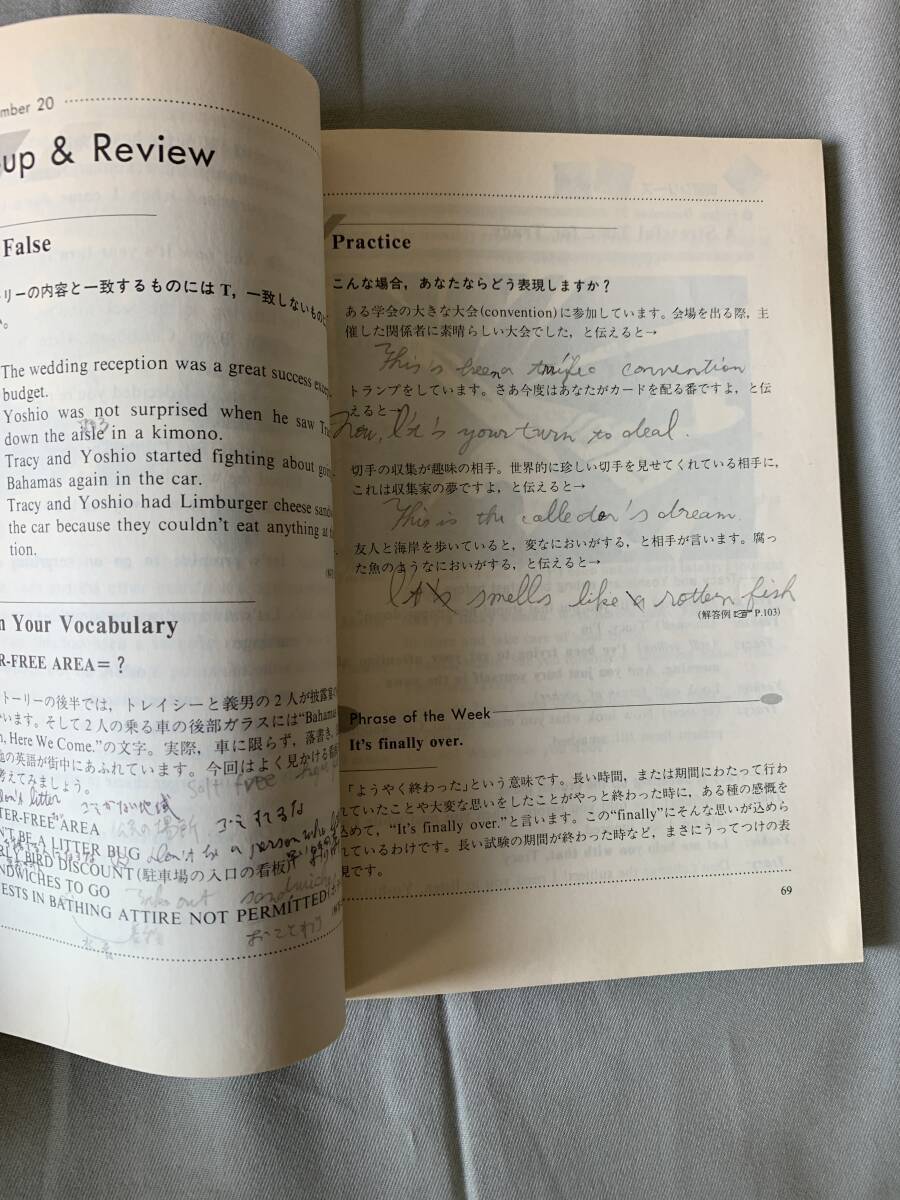 mber 20
up & Review
False
リーの内容と一致するものにはT，一致しないもの
い。
The wedding reception was a great success
budget.
Yoshio was not surprised when he saw
down the aisle in a kimono.
Tracy and Yoshio started fighting about
Bahamas again in the car.
Tracy and Yoshio had Limburger cheese
the car because they couldn't eat anything at
tion.
n Your Vocabulary
R-FREE AREA＝？
トーリーの後半では，トレイシーと義男の2人が
います。そして2人の乗る車の後部ガラスには“Bahamas
Here We Come.”の文字。実際，車に限らず，落書き，
の英語が街中にあふれています。今回はよく見かける
考えてみましょう。
free
litter
TER-FREE AREA
N'T BE A LITTER BUG Don't be a person who
BIRD DISCOUNT(駐車場の入口の看板)
NDWICHES TO GO
out
ESTS IN BATHING ATTIRE NOT PERMITTED
おことわり
Practice
こんな場合，あなたならどう表現しますか？
ある学会の大きな大会(convention)に参加しています。会場を出る際，主
催した関係者に素晴らしい大会でした，と伝えると→
This is been a convention
トランプをしています。さあ今度はあなたがカードを配る番ですよ，と伝
えると→
Now, It's your turn to deal.
切手の収集が趣味の相手。世界的に珍しい切手を見せてくれている相手に，
これは収集家の夢ですよ，と伝えると→
This is the dream.
友人と海岸を歩いていると，変なにおいがする，と相手が言います。腐っ
た魚のようなにおいがする，と伝えると→
It smells like a rotten fish
(解答例☞P.103)
Phrase of the Week
It's finally over.
「ようやく終わった」という意味です。長い時間，または期間にわたって行わ
れていたことや大変な思いをしたことがやっと終わった時に，ある種の感慨を
込めて，“It's finally over.”と言います。この“finally”にそんな思いが込めら
れているわけです。長い試験の期間が終わった時など，まさにうってつけの表
現です。
69